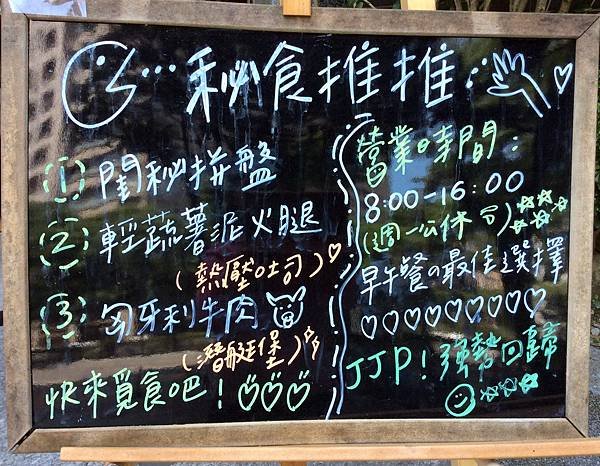 …秘食推推…
① 閨秘拼盤
② 輕蔬薯泥火腿
(熱壓吐司)
③ 匈牙利牛肉
(潛艇堡)
快來覓食吧!
營業時間:
8:00-16:00
(週一公休)
早午餐の最佳選擇
JJP!強勢回歸